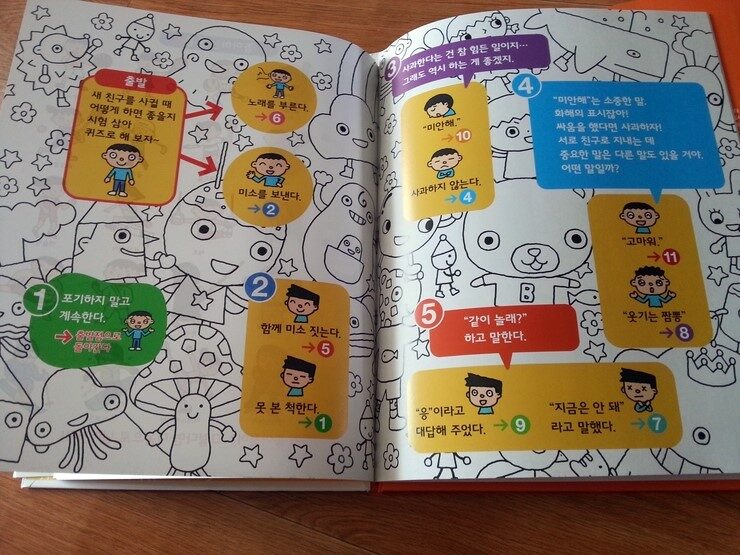 출발
새 친구를 사귈 때
어떻게 하면 좋을지
시험 삼아
퀴즈로 해 보자~
노래를 부른다.
→6
미소를 보낸다.
→2
1
포기하지 말고
계속한다.
→출발점으로
돌아간다
2
함께 미소 짓는다.
→5
못 본 척한다.
→1
3
사과한다는 건 참 힘든 일이지…
그래도 역시 하는 게 좋겠지.
"미안해."
→10
사과하지 않는다.
→4
4
"미안해"는 소중한 말.
화해의 표시잖아!
싸움을 했다면 사과하자!
서로 친구로 지내는 데
중요한 말은 다른 말도 있을 거야.
어떤 말일까?
"고마워."
→11
"웃기는 짬뽕"
→8
5
"같이 놀래?"
하고 말한다.
"응"이라고
대답해 주었다. →9
"지금은 안 돼"
라고 말했다. →7
B